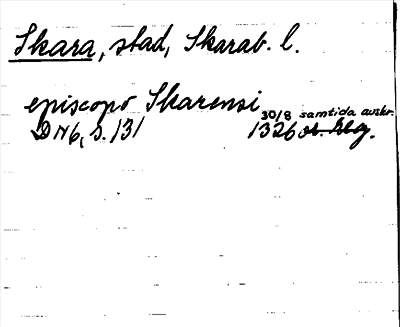 Skara, stad, Skarab. l.
episcopo Skarensi
30/8 samtida avskr.
DN6, s. 131 1326